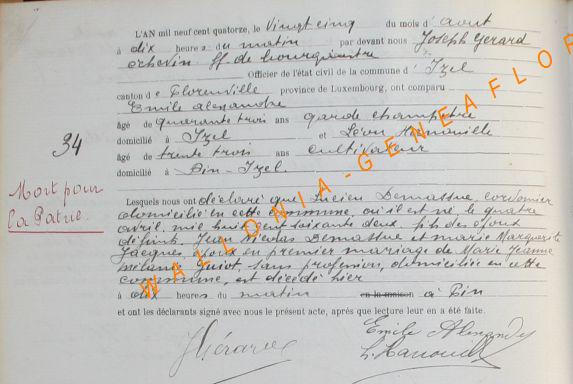 L'AN mil neuf cent quatorze, le vingt cinq du mois d'août
à dix heures du matin par devant nous Joseph Gerard
échevin ff. de bourgmestre
Officier de l'état civil de la commune d'Izel
canton de Florenville province de Luxembourg, ont comparu
Emile Alexandre
âgé de quarante trois ans garde champêtre
domicilié à Izel et Léon
âgé de trente trois ans cultivateur
domicilié à Pin-Izel.
34
Mort pour
la Patrie.
Lesquels nous ont déclaré que Lucien Demasure, cordonnier
domicilié en cette commune, où il est né le quatre
avril mil huit cent soixante deux, fils des époux
défunts Jean Nicolas Demasure et Marie Marguerite
Jacques, époux en premier mariage de Marie Jeanne
Guiot, sans profession, domiciliée en cette
commune, est décédé hier
à dix heures du matin en la maison à Pin
et ont les déclarants signé avec nous le présent acte, après que lecture leur en a été faite.
JGérard
Emile Alexandre
WALLONIA-GENEAFLOR